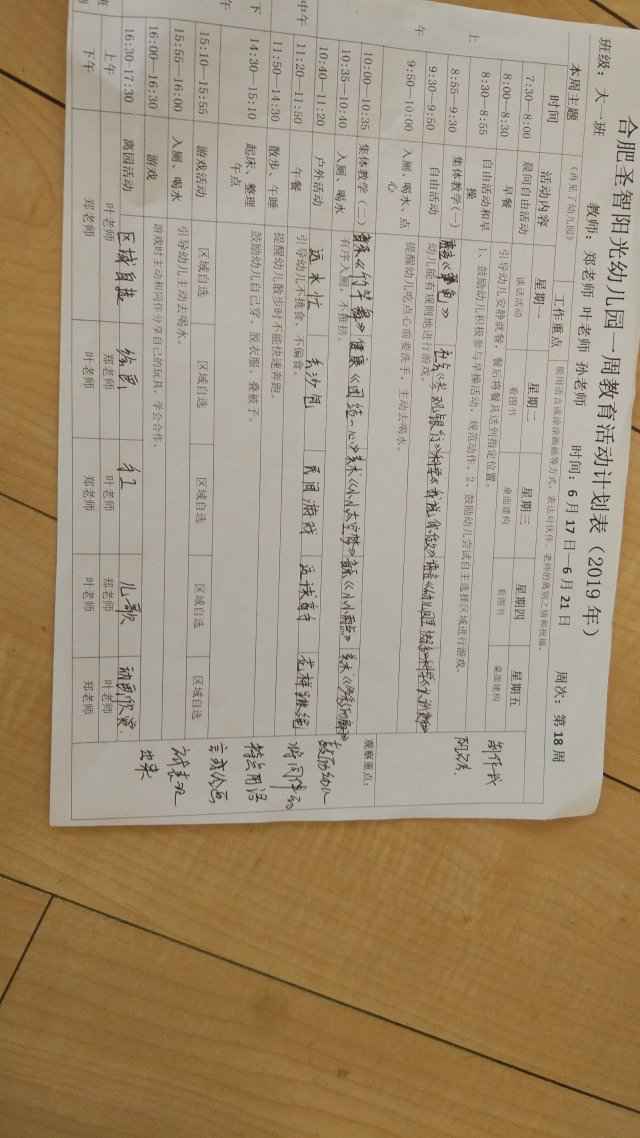 合肥圣智阳光幼儿园一周教育活动计划表（2019 年）
班级：大一班 教师：郑老师 叶老师 孙老师 时间：6 月 17 日—6 月 21 日 周次：第 18 周
本周主题 （再见了幼儿园） 工作重点 使用语言谈谈画画等方式，表达对伙伴、老师的离别之情和祝福。
时间 活动内容 星期一 星期二 星期三 星期四 星期五
7:30—8:00 晨间自由活动 谈话活动 看图书 桌面建构 看图书 桌面建构
8:00—8:30 早餐 引导幼儿安静就餐，餐后将餐具送到指定位置。
8:30—8:55 自由活动和早操 1、鼓励幼儿积极参与早操活动，规范动作。2、鼓励幼儿尝试自主选择区域进行游戏。
上午
8:55—9:30 集体教学(一)
9:30—9:50 自由活动 幼儿能有规则地进行游戏。
9:50—10:00 入厕、喝水、点心 提醒幼儿吃点心前要洗手，主动去喝水。
10:00—10:35 集体教学（二） 健康《团结一心》 美术《小小太空梦》
10:35—10:40 入厕、喝水 有序入厕，不推挤。
10:40—11:20 户外活动 运水忙 丢沙包 民间游戏 花样跳绳
中午
11:20—11:50 午餐 引导幼儿不挑食、不偏食。
11:50—14:30 散步、午睡 提醒幼儿散步时不能快速奔跑。
下午
14:30—15:10 起床、整理 午点 鼓励幼儿自己穿、脱衣服、叠被子。
15:10—15:55 游戏活动 区域自选 区域自选 区域自选 区域自选 区域自选
15:55—16:00 入厕、喝水 引导幼儿主动去喝水。
16:00—16:30 游戏 游戏时主动和同伴分享自己的玩具，学会合作。
16:30—17:30 离园活动 区域自选 绘画 手工 儿歌 动画欣赏
上午 叶老师 郑老师 叶老师 郑老师 叶老师
下午 郑老师 叶老师 郑老师 叶老师 郑老师
观察重点：
鼓励幼儿
将同伴的
特点用语
言或绘画